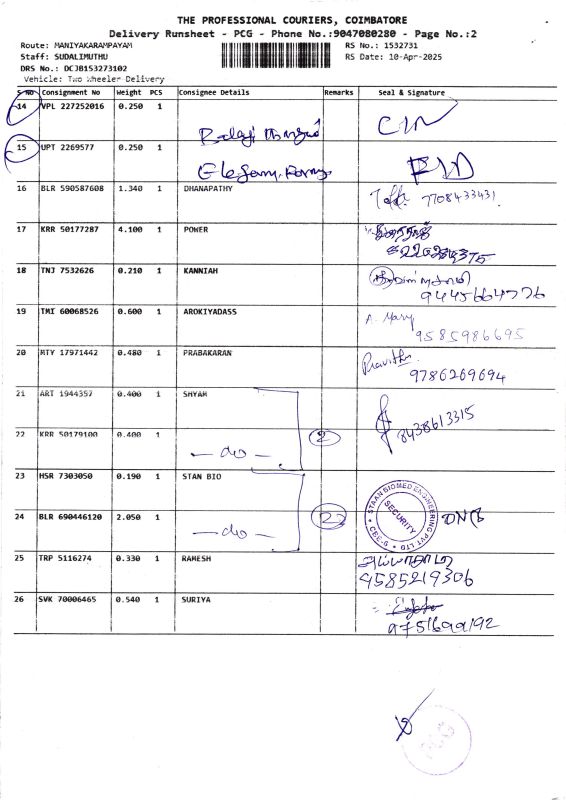 THE PROFESSIONAL COURIERS, COIMBATORE
Delivery Runsheet - PCG - Phone No.:9047080280 - Page No.:2
Route: MANIYAKARAMPAYAM RS No.: 1532731
Staff: SUDALIMUTHU RS Date: 10-Apr-2025
DRS No.: DCJB153273102
Vehicle: Two Wheeler Delivery
S No Consignment No Weight PCS Consignee Details Remarks Seal & Signature
14 VPL 227252016 0.250 1
15 UPT 2269577 0.250 1
16 BLR 590587608 1.340 1 DHANAPATHY 7708433431
17 KRR 50177287 4.100 1 POWER
18 TNJ 7532626 0.210 1 KANNIAH 9445664776
19 TMI 60068526 0.600 1 AROKIYADASS A. Mary 9585986695
20 MTY 17971442 0.480 1 PRABAKARAN 9786269694
21 ART 1944357 0.400 1 SHYAM 8438613315
22 KRR 50179100 0.400 1 - do - 2
23 HSR 7303050 0.190 1 STAN BIO
24 BLR 690446120 2.050 1 - do - 2 STAAN BIOMED ENGINEERING PVT LTD SECURITY
25 TRP 5116274 0.330 1 RAMESH 9585219306
26 SVK 70006465 0.540 1 SURIYA 9751699192